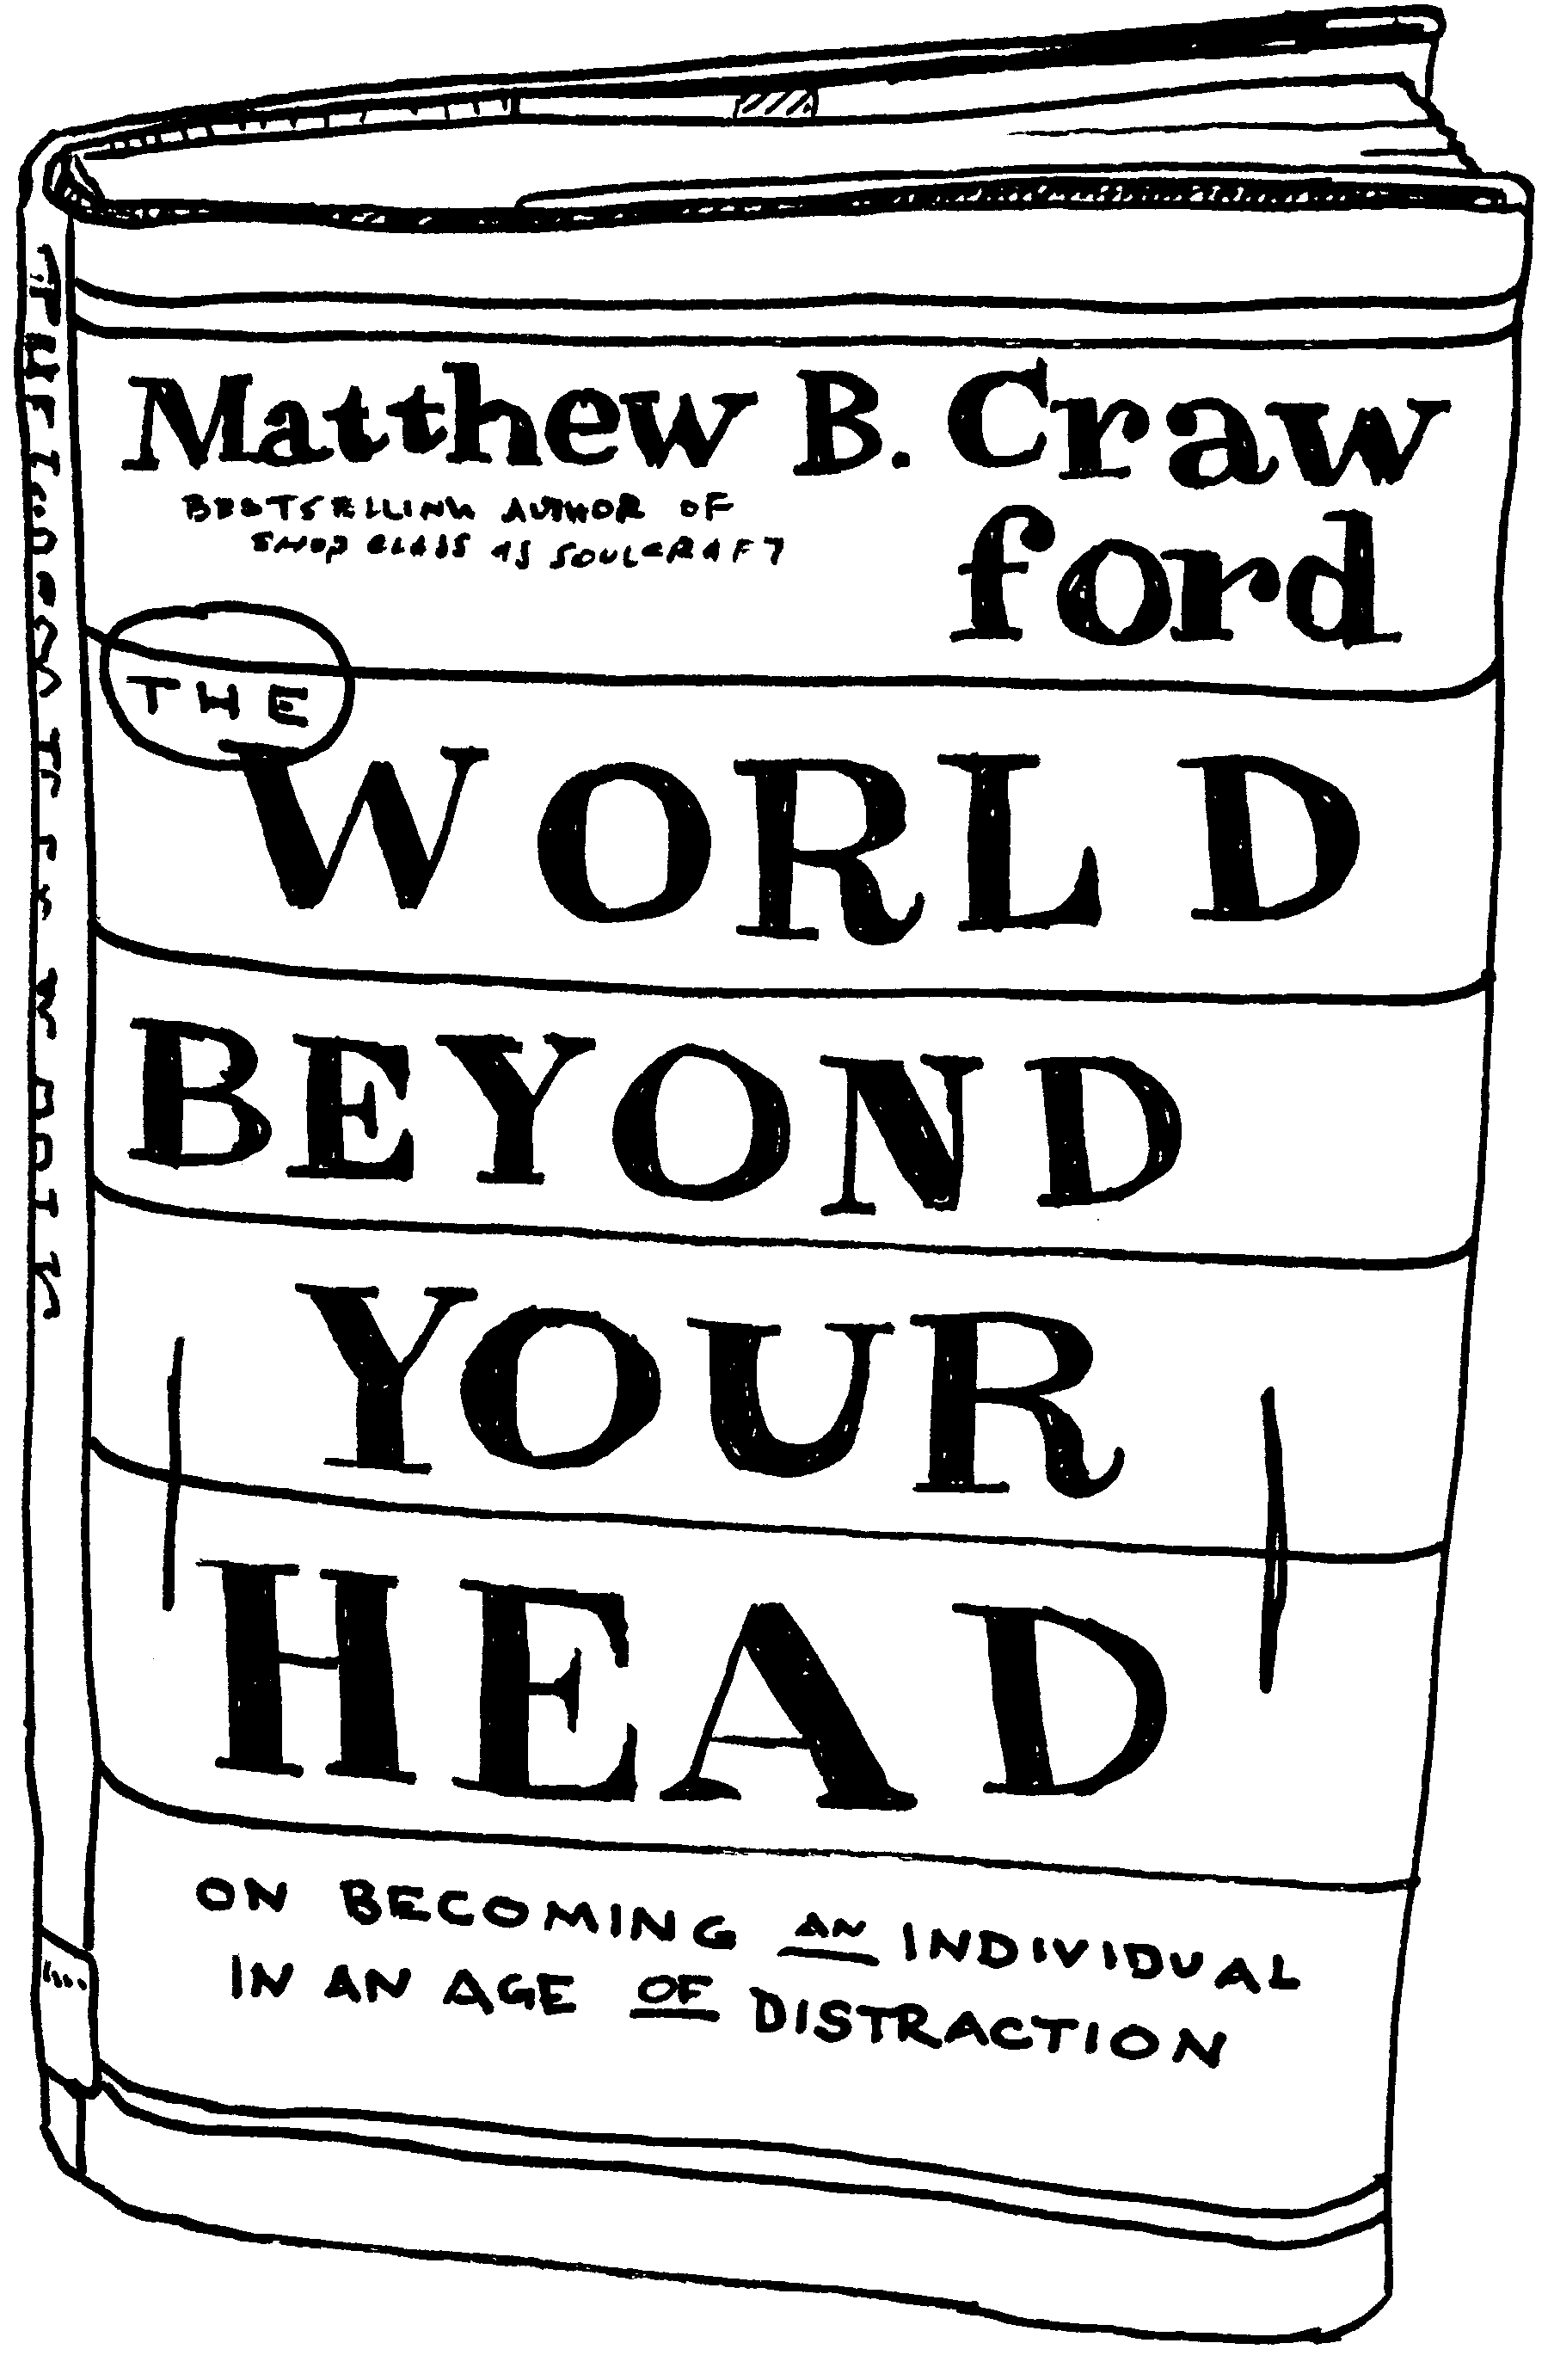 Matthew B. Craw
ford
BESTSELLING AUTHOR OF
SHOP CLASS AS SOULCRAFT
THE
WORLD
BEYOND
YOUR
HEAD
ON BECOMING AN INDIVIDUAL
IN AN AGE OF DISTRACTION